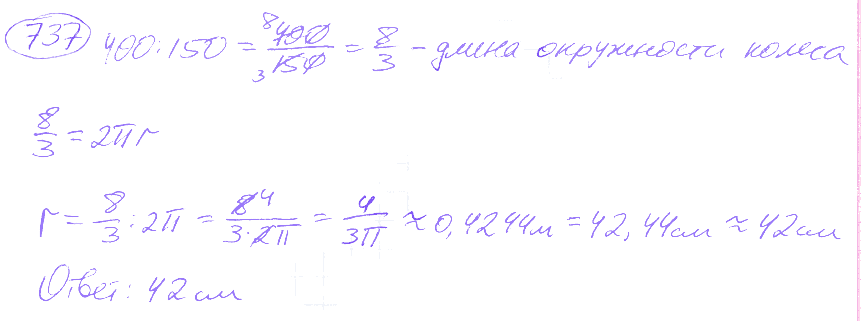 737 400:150 = 8 400/3 150 = 8/3 - длина окружности колеса
8/3 = 2πr
r = 8/3 : 2π = 8 4/3·2π = 4/3π ≈ 0,4244м = 42,44см ≈ 42см
Ответ: 42см